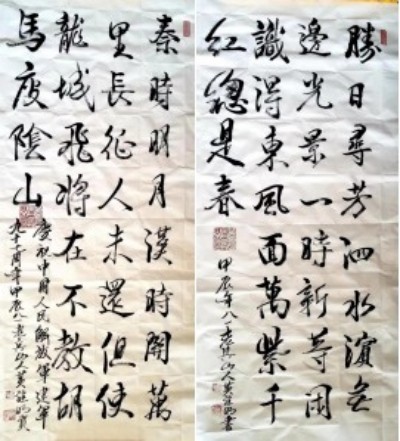 勝日尋芳泗水濱無
邊光景一時新等閑
識得東風面萬紫千
紅總是春
甲辰年八一
山人黃
書
秦時明月漢時關萬
里長征人未還但使
龍城飛將在不教胡
馬度陰山
慶祝中國人民解放軍建軍
九十七周年甲辰八一
山人黃